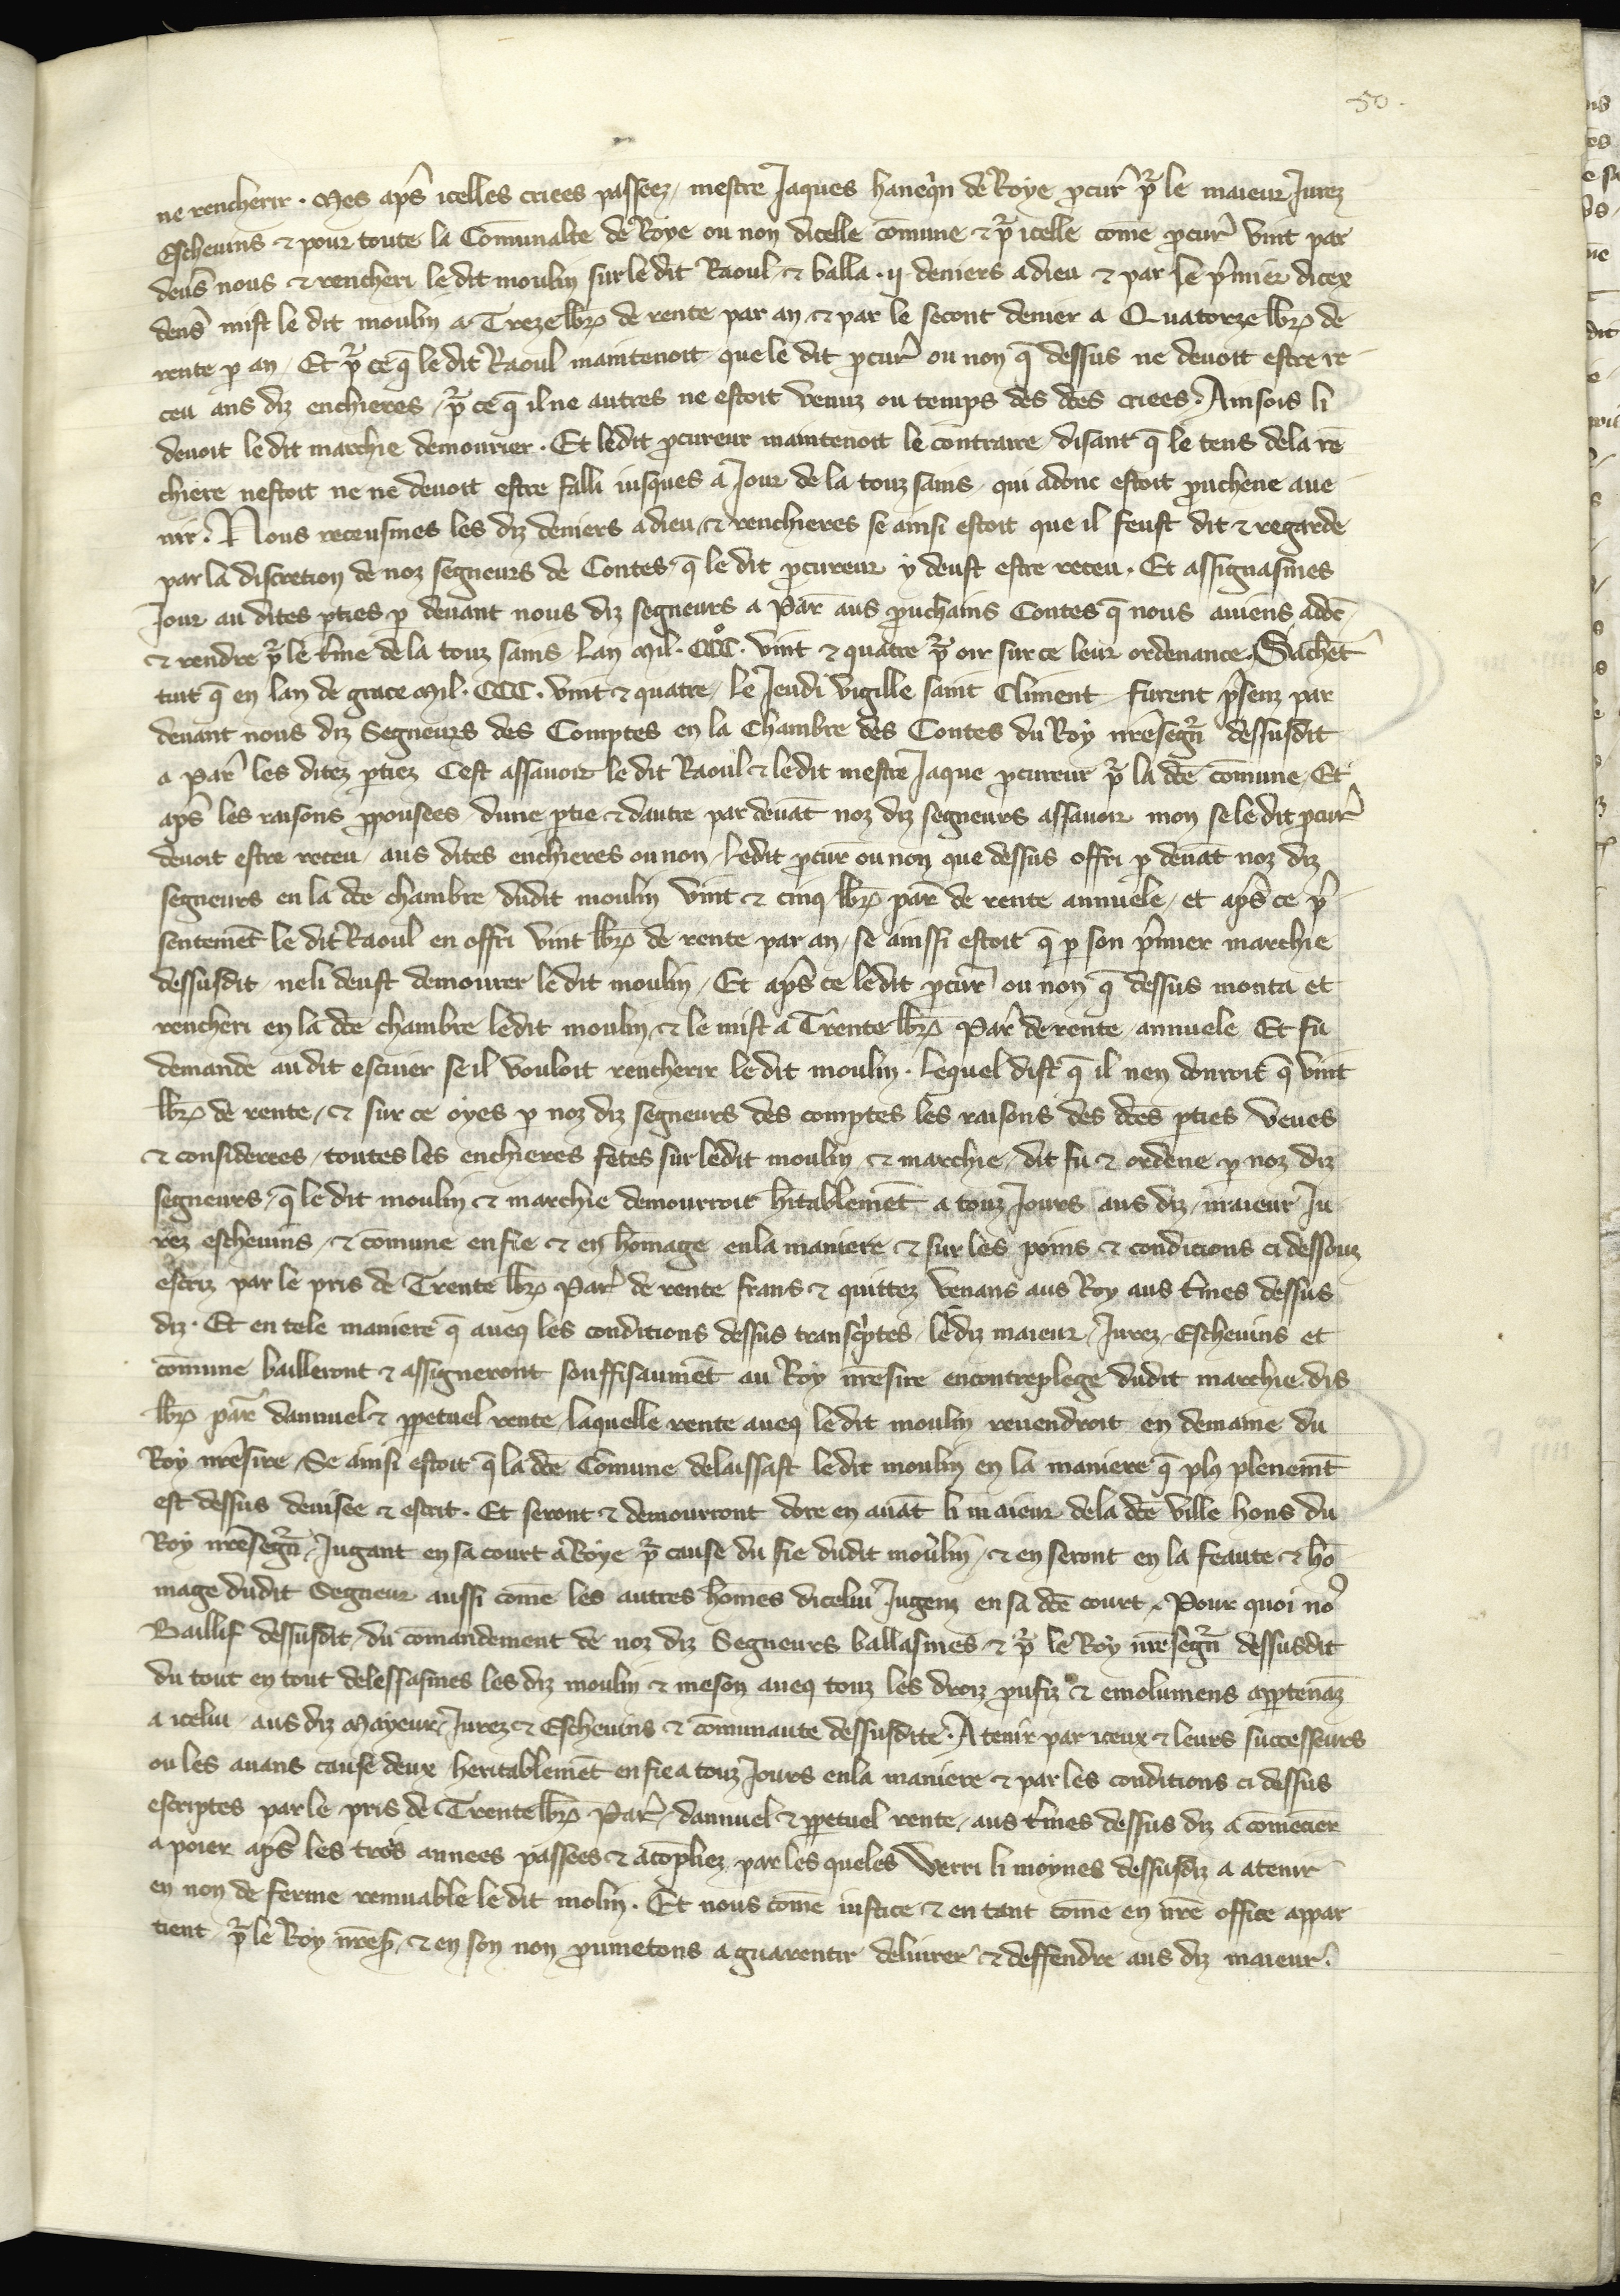 50.
ne rencherir. Mes apš icelles criees passeez, mestre Jaques haneq̃n de Roye ꝓcur̃ pr̃ le maieur Jurez
Escheuins & pour toute la Cõmunalte de Roye ou non dicelle cõmune & pr̃ icelle come ꝓcur̃ vint par
deuš nous & rencheri le dit moulin sur le dit Raoul, & balla .ij. deniers a dieu & par le p̃mier dicex
denš mist le dit moulin a Treze lbr̃ de rente par an & par le secont denier a Quatorze lbr̃ de
rente ꝑ an, Et pr̃ ce q̃ le dit Raoul maintenoit que le dit ꝓcur̃ ou non q̃ dessus ne deuoit estre re
ceu aus diz enchieres, pr̃ ce q̃ il ne autres ne estoit venuz ou temps des dc̃es criees. Ainsois li
deuoit le dit marchie demourier. Et le dit ꝓcureur maintenoit le contraire disant q̃ le tens de la rē
chiere nestoit ne ne deuoit estre falli iusques a Jour de la touz sains, qui adonc estoit ꝓuchene aue
nir. Nous receusmes les diz deniers a dieu & renchieres se ainsi estoit que il feust dit & regarde
par la discretion de noz segneurs de Contes q̃ le dit ꝓcureur y deust estre receu. Et assignasmes
Jour au dites ꝑties ꝑ deuant nous diz segneurs a Par̃ aus ꝓuchains Contes q̃ nous auiens a
& rendre pr̃ le t̃me de la touz sains lan Mil. CCC. vint & quatre pr̃ oir sur ce leur ordenance. Sachēt
tuit q̃ en lan de grace Mil. CCC. vint & quatre, le Jeudi vigille saint Climent furent p̃senz par
deuant nous diz Segneurs des Comptes en la Chambre des Contes du Roy nr̃e segr̃ dessusdit
a Par̃ les ditez ꝑtiez Cest assauoir le dit Raoul & le dit mestre Jaque ꝓcureur pr̃ la dc̃e cõmune, Et
apš les raisons ꝓpousees dune ꝑtie & dautre par deuāt noz diz segneurs assauoir mon se le dit ꝓcur̃
deuoit estre receu aus dites enchieres ou non, Ledit ꝓcur̃ ou non que dessus offri ꝑ deuāt noz diz
segneurs en la dc̃e chambre dudit moulin vint & cinq lbr̃ par̃ de rente annuele, et apš ce p̃
sentemēt le dit Raoul en offri vint lbr̃ de rente par an, se ainssi estoit q̃ ꝑ son p̃mier marchie
dessusdit ne li deust demourer le dit moulin, Et apš ce le dit ꝓcur̃ ou non q̃ dessus monta et
rencheri en la dc̃e chambre le dit moulin, & le mist a Trente lbr̃ Par̃ de rente annuele Et fu
demande au dit escuier se il vouloit rencherir le dit moulin. Lequel dist q̃ il nen donroit q̃ vint
lbr̃ de rente, & sur ce oyes ꝑ noz diz segneurs des comptes les raisons des dc̃es ꝑties veues
& considerees, toutes les enchieres fetes sur le dit moulin & marchie, dit fu & ordene ꝑ noz diz
segneurs, q̃ le dit moulin & marchie demourroit h̃itablemēt a touz Jours aus diz, maieur Ju
rez escheuins, & cõmune en fie & en homage en la maniere & sur les poins & conditions ci dessouz
escriz par le pris de Trente lbr̃ Par̃ de rente frans & quittez venans aus Roy aus t̃mes dessus
diz. Et en tele maniere q̃ aueq les conditions dessus transc̃ptes, le diz maieur, Jurez, Escheuins et
cõmune bailleront & assigneront souffisaumēt au Roy nr̃e sire en contreplege dudit marchie. dis
lbr̃ par̃ dannuel & ꝑpetuel rente, laquelle rente aueq le dit moulin reuendroit en demaine du
Roy nr̃e sire, Se ainsi estoit q̃ la dc̃e Cõmune delaissast le dit moulin en la maniere q̃ plꝰ plenemt̃
est dessus deuisee & escrit. Et seront & demourront dore en auāt li maieur de la dc̃e ville hons du
Roy nr̃e segr̃, Jugant en sa court a Roye pr̃ cause du fie dudit moulin, & en seront en la feaute & ho
mage dudit Segneur aussi cõme les autres hõmes dicelui Jugenz en sa dc̃e court. Pour quoi noꝰ
Baillif dessusdit, du cõmandement de noz diz Segneurs ballasmes & pr̃ le Roy nr̃e segr̃ dessusdit
du tout en tout delessasmes les diz moulin & meson aueq touz les droiz ꝓufiz & emolumens aꝑtenāz
a icelui aus diz Mayeur, Jurez & Escheuins & cõmunaute dessusdite. A tenir par iceux & leurs successeurs
ou les auans cause deux heritablemēt en fie a touz Jours en la maniere & par les conditions ci dessus
escriptes par le pris de Trente lbr̃ Par̃, dannuel & ꝑpetuel rente, aus t̃mes dessus diz a cõmēcier
a poier apš les trois annees passees & acõpliez par les queles Werri li moynes dessusdiz a atenir
en non de ferme remuable le dit molin. Et nous cõme iustice & en tant cõme en nr̃e office appar
tient, pr̃ le Roy nr̃e s̃, & en son non ꝓumetons a guarentir deliurer & deffendre aus diz maieur.